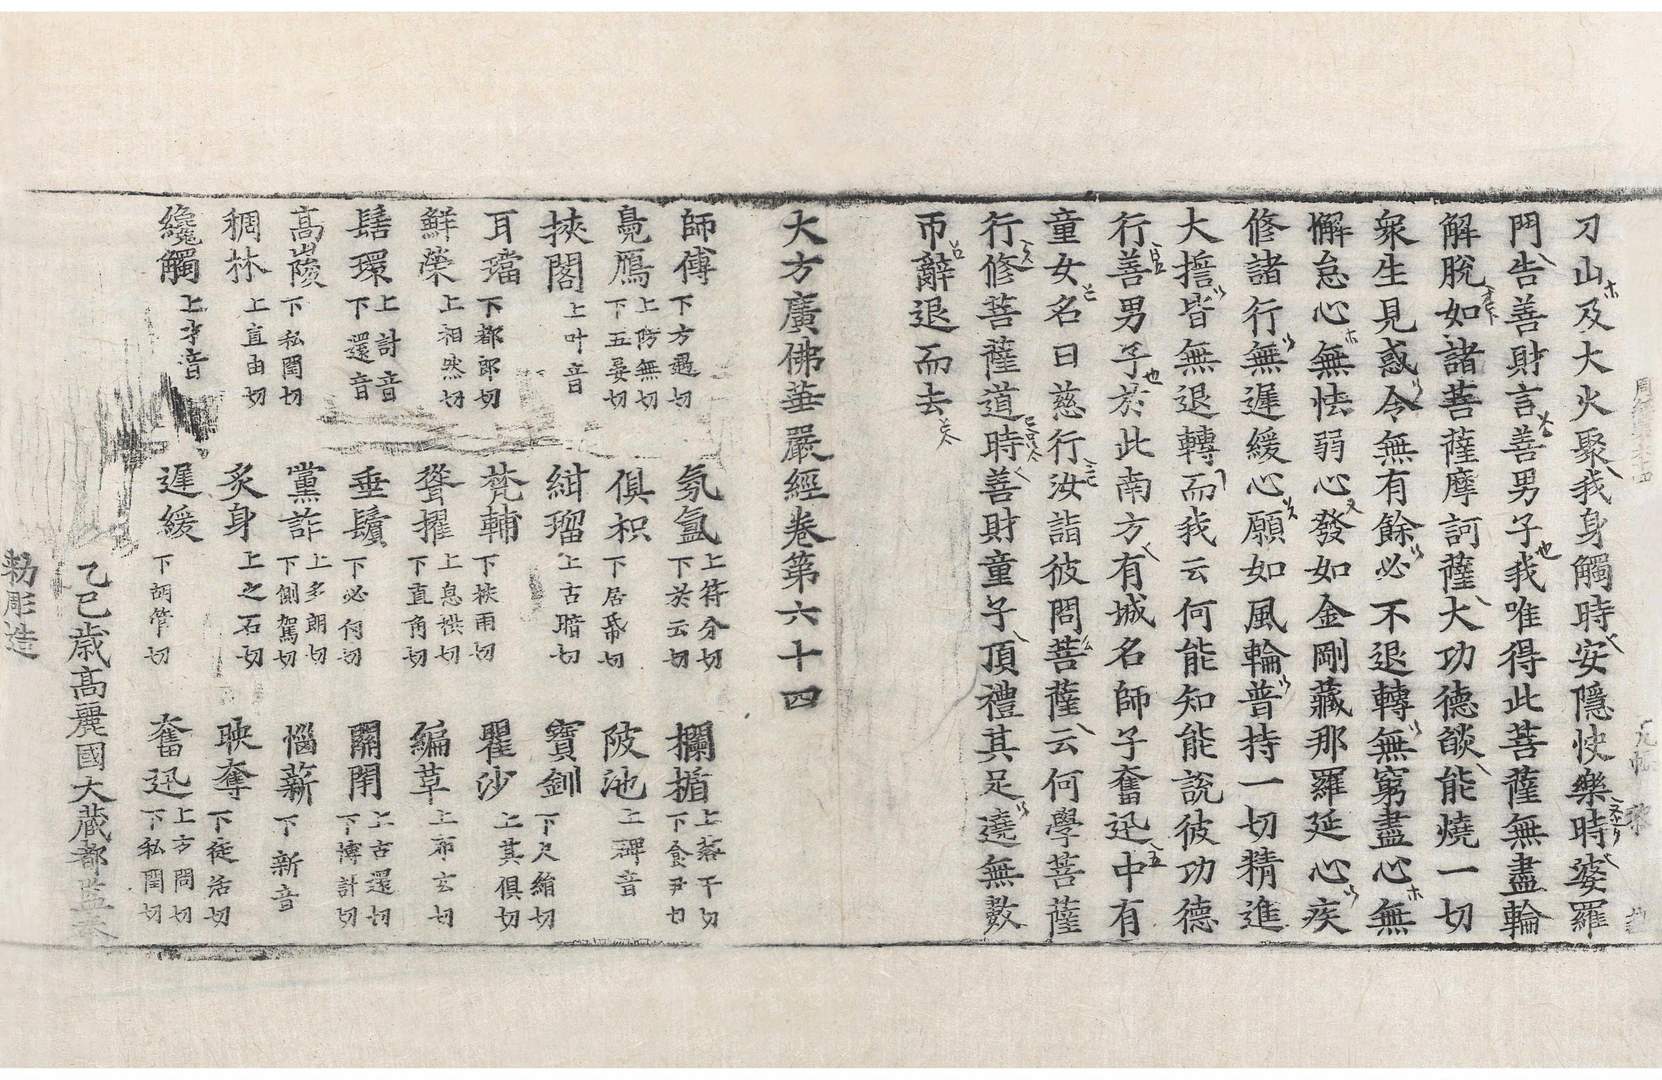 刀山及大火聚我身觸時安隱快樂時婆羅
門告善財言善男子我唯得此菩薩無盡輪
解脫如諸菩薩摩訶薩大功德燄能燒一切
衆生見惑令無有餘必不退轉無窮盡心無
懈怠心無怯弱心發如金剛藏那羅延心疾
修諸行無遲緩心願如風輪普持一切精進
大擔皆無退轉而我云何能知能說彼功德
行善男子於此南方有城名師子奮迅中有
童女名曰慈行汝詣彼問菩薩云何學菩薩
行修菩薩道時善財童子頂禮其足遶無數
帀辭退而去
大方廣佛華嚴經卷第六十四
師傅 下方遇切 氛氳 上符分切下於云切 欄楯 上落干切下食尹切
鳧鴈 上防無切下五晏切 俱枳 下居帋切 陂池 上碑音
挾閣 上叶音 紺瑠 上古暗切 寶釧 下尺絹切
耳璫 下都郎切 梵輔 下扶雨切 瞿沙 上其俱切
鮮榮 上相然切 聳擢 上息拱切下直角切 編草 上布玄切
髻環 上計音下還音 垂鬢 下必何切 關閉 上古還切下博計切
高㠉 下私閏切 黨詐 上多朗切下側駕切 惱薪 下新音
稠林 上直由切 炙身 上之石切 映奪 下徒活切
纔觸 上才音 遲緩 下胡管切 奮迅 上方問切下私閏切
乙巳歲高麗國大藏都監奉
勑彫造